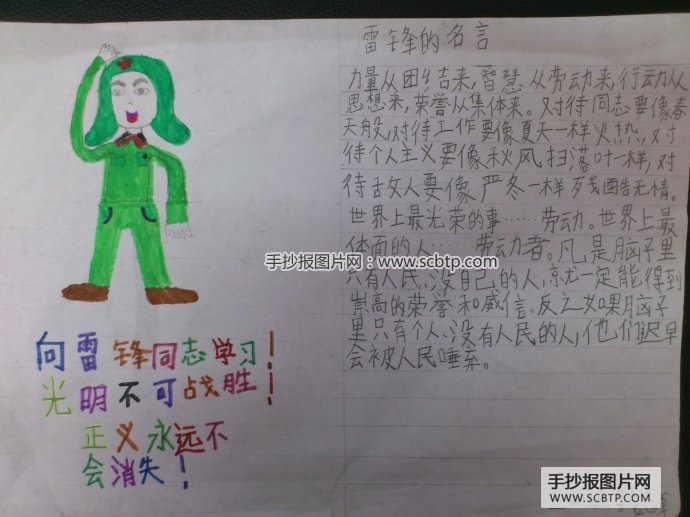 雷锋的名言
力量从团结来,智慧从劳动来,行动从
思想来,荣誉从集体来。对待同志要像春
天般,对待工作要像夏天一样火热,对
待个人主义要像秋风扫落叶一样,对
待敌人要像严冬一样残酷无情。
世界上最光荣的事……劳动。世界上最
体面的人……劳动者。凡是脑子里
只有人民、没有自己的人,就一定能得到
崇高的荣誉和威信。反之如果脑子
里只有个人、没有人民的人,他们迟早
会被人民唾弃。
向雷锋同志学习!
光明不可战胜!
正义永远不
会消失!
手抄报图片网:www.scbtp.com
手抄报图片网
WWW.SCBTP.COM